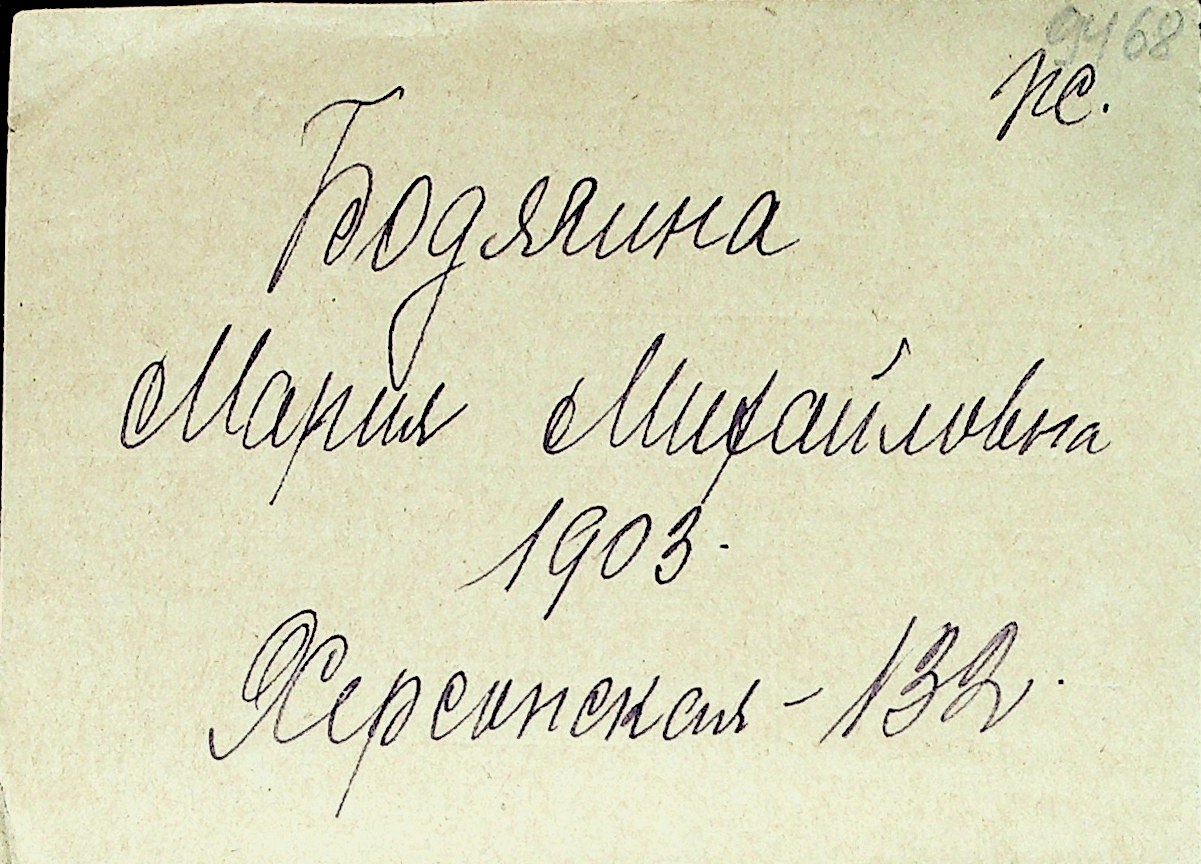 9468
рс.
Бодягина
Мария Михайловна
1903.
Херсонская - 132.